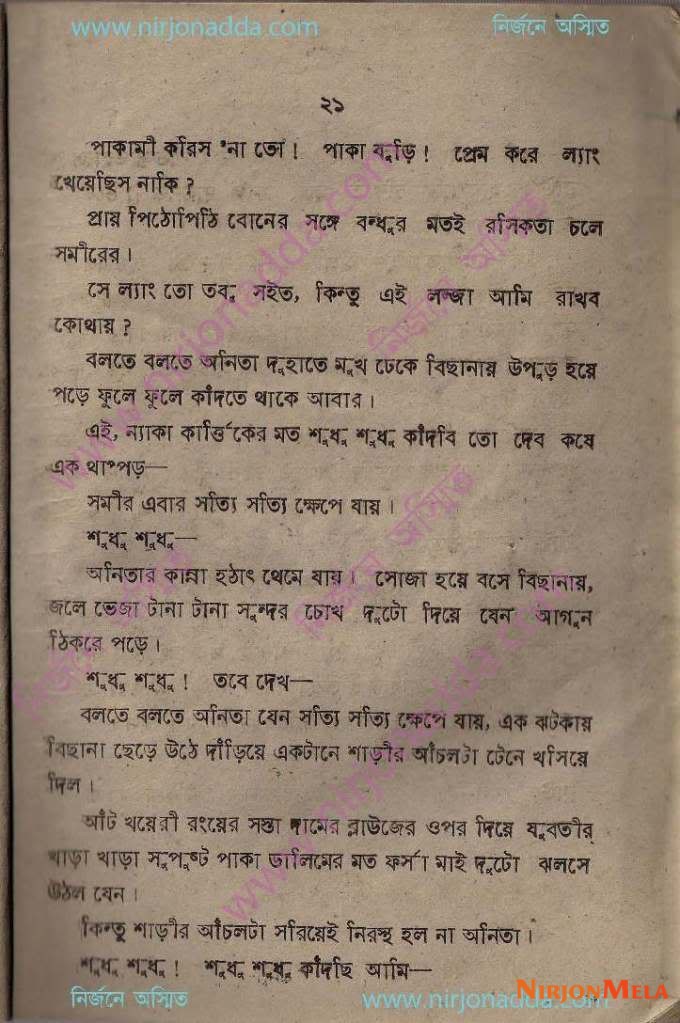 www.nirjonadda.com নির্জনে অস্মিত
২১
পাকামী করিস না তো ! পাকা বুড়ি ! প্রেম করে ল্যাং
খেয়েছিস নাকি ?
প্রায় পিঠোপিঠি বোনের সঙ্গে বন্ধুর মতই রসিকতা চলে
সমীরের ।
সে ল্যাং তো তবু সইত, কিন্তু এই লজ্জা আমি রাখব
কোথায় ?
বলতে বলতে অনিতা দুহাতে মুখ ঢেকে বিছানায় উপুড় হয়ে
পড়ে ফুলে ফুলে কাঁদতে থাকে আবার ।
এই, ন্যাকা কার্ত্তিকের মত শুধু শুধু কাঁদবি তো দেব কষে
এক থাপ্পড়—
সমীর এবার সত্যি সত্যি ক্ষেপে যায় ।
শুধু শুধু—
অনিতার কান্না হঠাৎ থেমে যায় । সোজা হয়ে বসে বিছানায়,
জলে ভেজা টানা টানা সুন্দর চোখ দুটো দিয়ে যেন আগুন
ঠিকরে পড়ে ।
শুধু শুধু ! তবে দেখ—
বলতে বলতে অনিতা যেন সত্যি সত্যি ক্ষেপে যায়, এক ঝটকায়
বিছানা ছেড়ে উঠে দাঁড়িয়ে একটানে শাড়ীর আঁচলটা টেনে খসিয়ে
দিল ।
আঁট খয়েরী রংয়ের সস্তা দামের ব্লাউজের ওপর দিয়ে যুবতীর
খাড়া খাড়া সুপুষ্ট পাকা ডালিমের মত ফর্সা মাই দুটো ঝলসে
উঠল যেন ।
কিন্তু শাড়ীর আঁচলটা সরিয়েই নিরস্থ হল না অনিতা ।
শুধু শুধু ! শুধু শুধু কাঁদছি আমি—
নির্জনে অস্মিত www.nirjonadda.com
NIRJONMELA
www.nirjonadda.com
নির্জনে অস্মিত